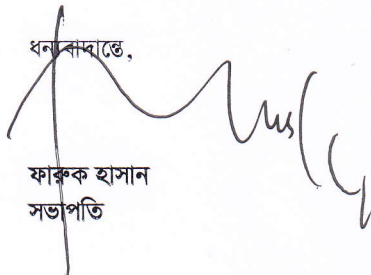 ধন্যবাদান্তে,
ফারুক হাসান
সভাপতি